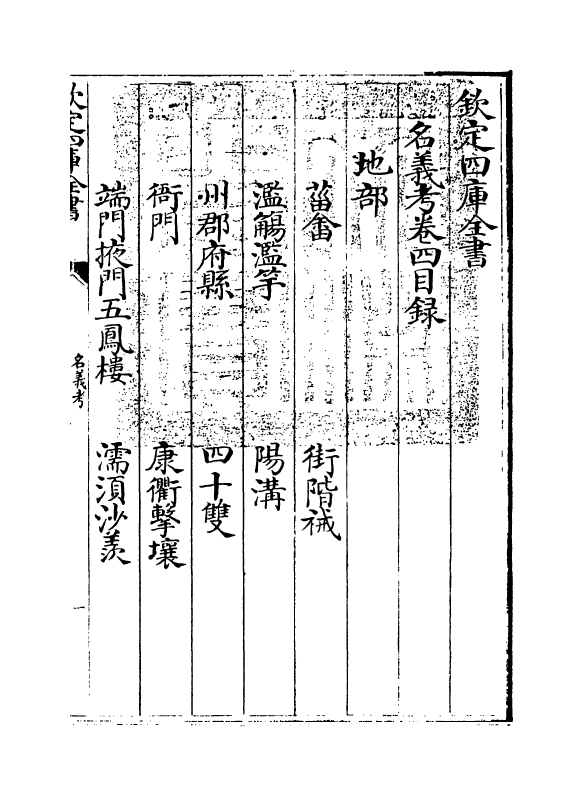 欽定四庫全書
名義考卷四目録
地部
菑畬　街階祴
濫觴濫竽　陽溝
州郡府縣　四十雙
衙門　康衢擊壤
端門掖門五鳳樓　濡須沙羨
欽定四庫全書　名義考　一